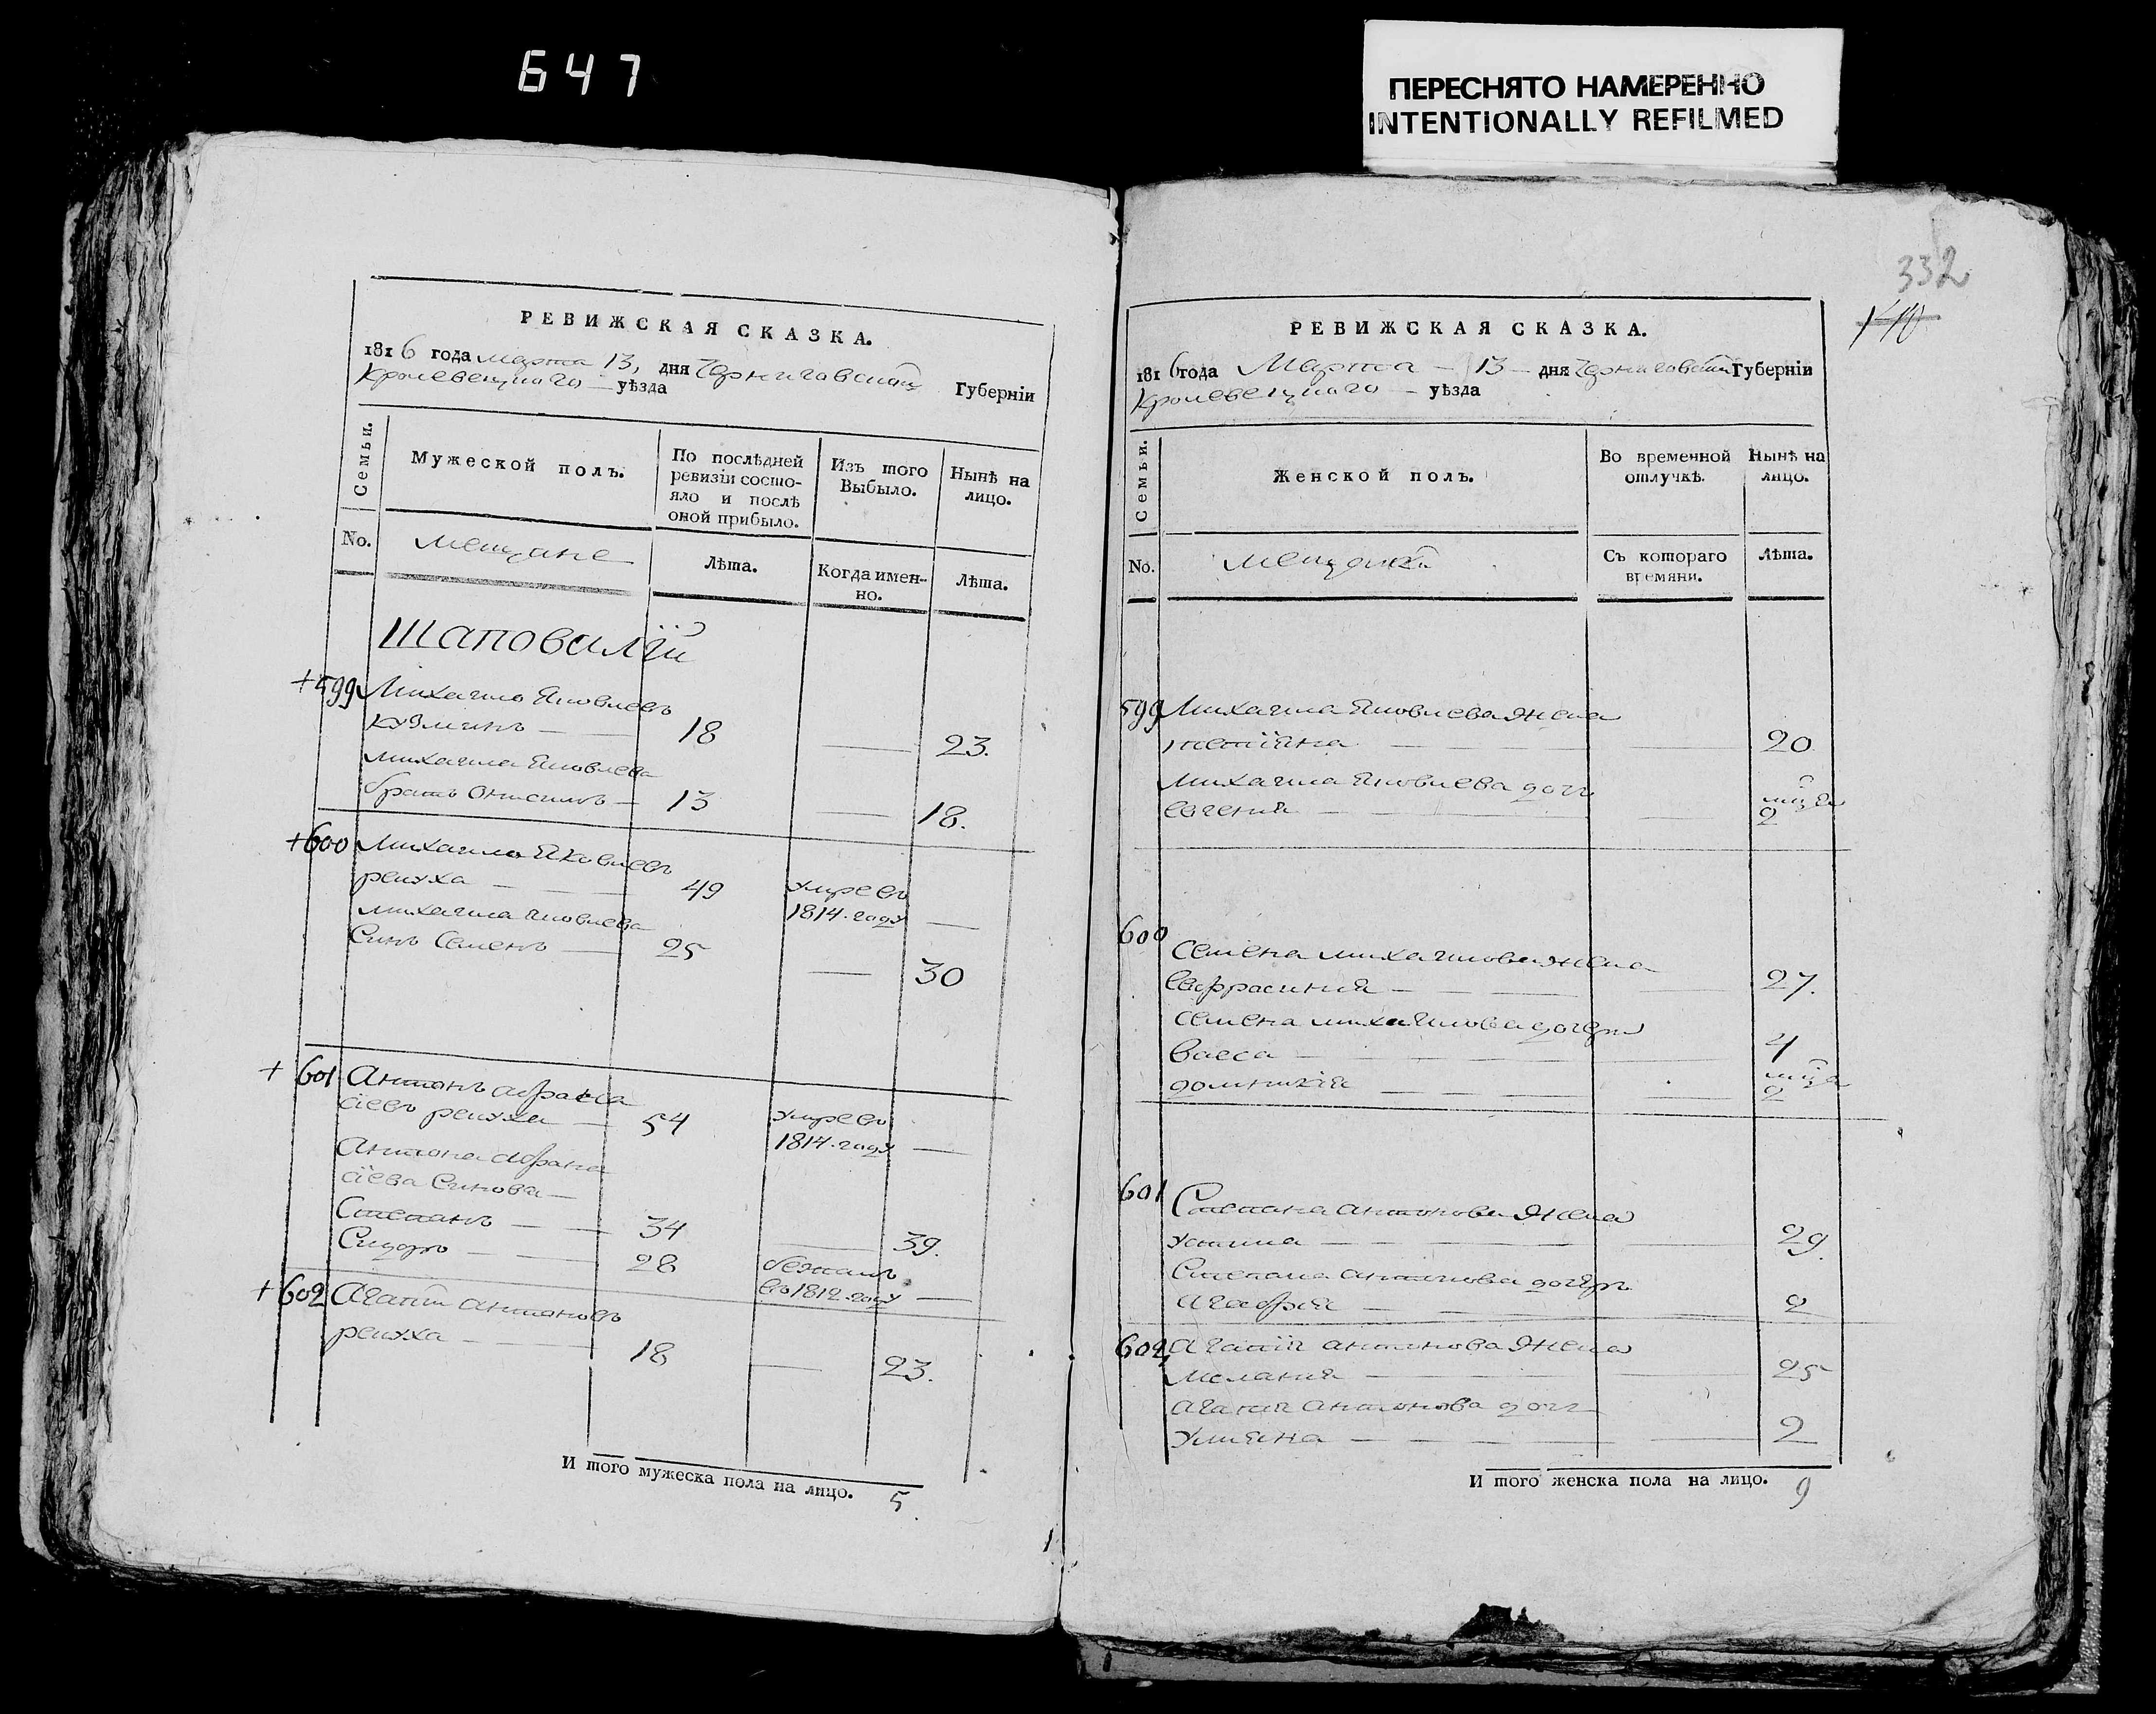 647
ПЕРЕСНЯТО НАМЕРЕННО
INTENTIONALLY REFILMED
РЕВИЖСКАЯ СКАЗКА.
1816 года марта 13, дня Черниговской Губерніи
Кролевецкаго уѣзда
Семьи.
Мужеской полъ.
По послѣдней ревизіи состояло и послѣ оной прибыло.
Изъ того Выбыло.
Нынѣ на лицо.
No.
мещане
Лѣта.
Когда именно.
Лѣта.
Шаповалѣй
+599 Михаило Яковлевъ
кузминъ — 18 — 23.
михаила Яковлева
братъ Онисимъ — 13 — 18.
+600 Михаило Яковлевъ
репуха — 49 умре въ
1814. году —
михаила Яковлева
Синъ Семенъ — 25 — 30
+ 601 Антонъ афана
сіевъ репуха — 54 умре въ
1814. году —
Антона афана
сіева Синови —
Степанъ — 34 — 39.
Сидоръ — 28 бежалъ
въ 1812. году —
+602 Агапій антоновъ
репуха — 18 — 23.
И того мужеска пола на лицо. 5
332
РЕВИЖСКАЯ СКАЗКА.
1816 года Марта 13 дня Черниговской Губерніи
Кролевецкаго уѣзда
Семьи.
Женской полъ.
Во временной отлучкѣ.
Нынѣ на лицо.
No.
мещанки
Съ котораго времяни.
Лѣта.
599 Михаила Яковлева жена
татіяна — 20
михаила Яковлева дочь
евгения — 2
600
Семена михаилова жена
Евфрасиния — 27.
Семена михаилова дочери
Васса — 4
домникія — 2
601 Степана антонова жена
устина — 29.
Степана антонова дочерь
агафія — 2
602 агапія антонова жена
мелания — 25
агапія антонова дочь
улияна — 2
И того женска пола на лицо. 9